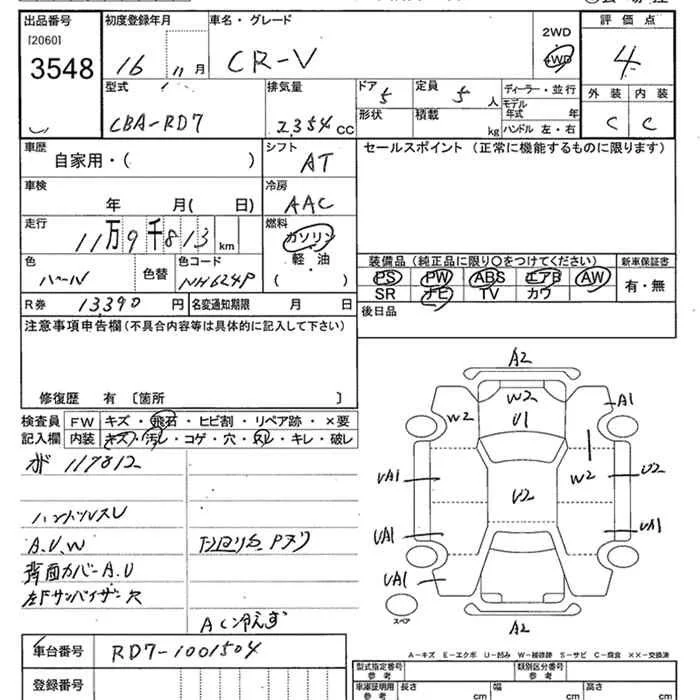 出品番号 初度登録年月 車名・グレード 2WD 評価点
[2060] 3548 16 11月 CR-V 4WD 4
型式 排気量 ドア 5 定員 5人 ディーラー・並行 外装 内装
CBA-RD7 2,354 cc 形状 積載 kg モデル年式 年 C C
ハンドル 左・右
車歴 自家用・( ) シフト AT セールスポイント(正常に機能するものに限ります)
車検 年 月( 日) 冷房 AAC
走行 11万9千813km 燃料 ガソリン
軽・油
( )
色 パール 色替 色コード NH624P
装備品(純正品に限り○をつけてください) 新車保証書
PS PW ABS エアB AW 有・無
SR ナビ TV カワ
R券 13,390円 名変通知期限 月 日 後日品
注意事項申告欄(不具合内容等は具体的に記入して下さい)
修復歴 有 〔箇所 〕
検査員 FW キズ・飛石・ヒビ割・リペア跡・×要
記入欄 内装 キズ・汚レ・コゲ・穴・スレ・キレ・破レ
117812
ハンドルスレ
A.U.W
背面カバーA.U
左Fサンバイザー穴
AC冷えず
A2
W2
U1
W2
A1
W2
UA1
U2
U2
UA1
UA1
UA1
スペア
A2
A-キズ E-エクボ U-凹み W-補修跡 S-サビ C-腐食 ××-交換済
車台番号 RD7-1001504
登録番号
型式指定番号 参考 類別区分番号 参考
車庫証明用 参考 長さ cm 幅 cm 高さ cm